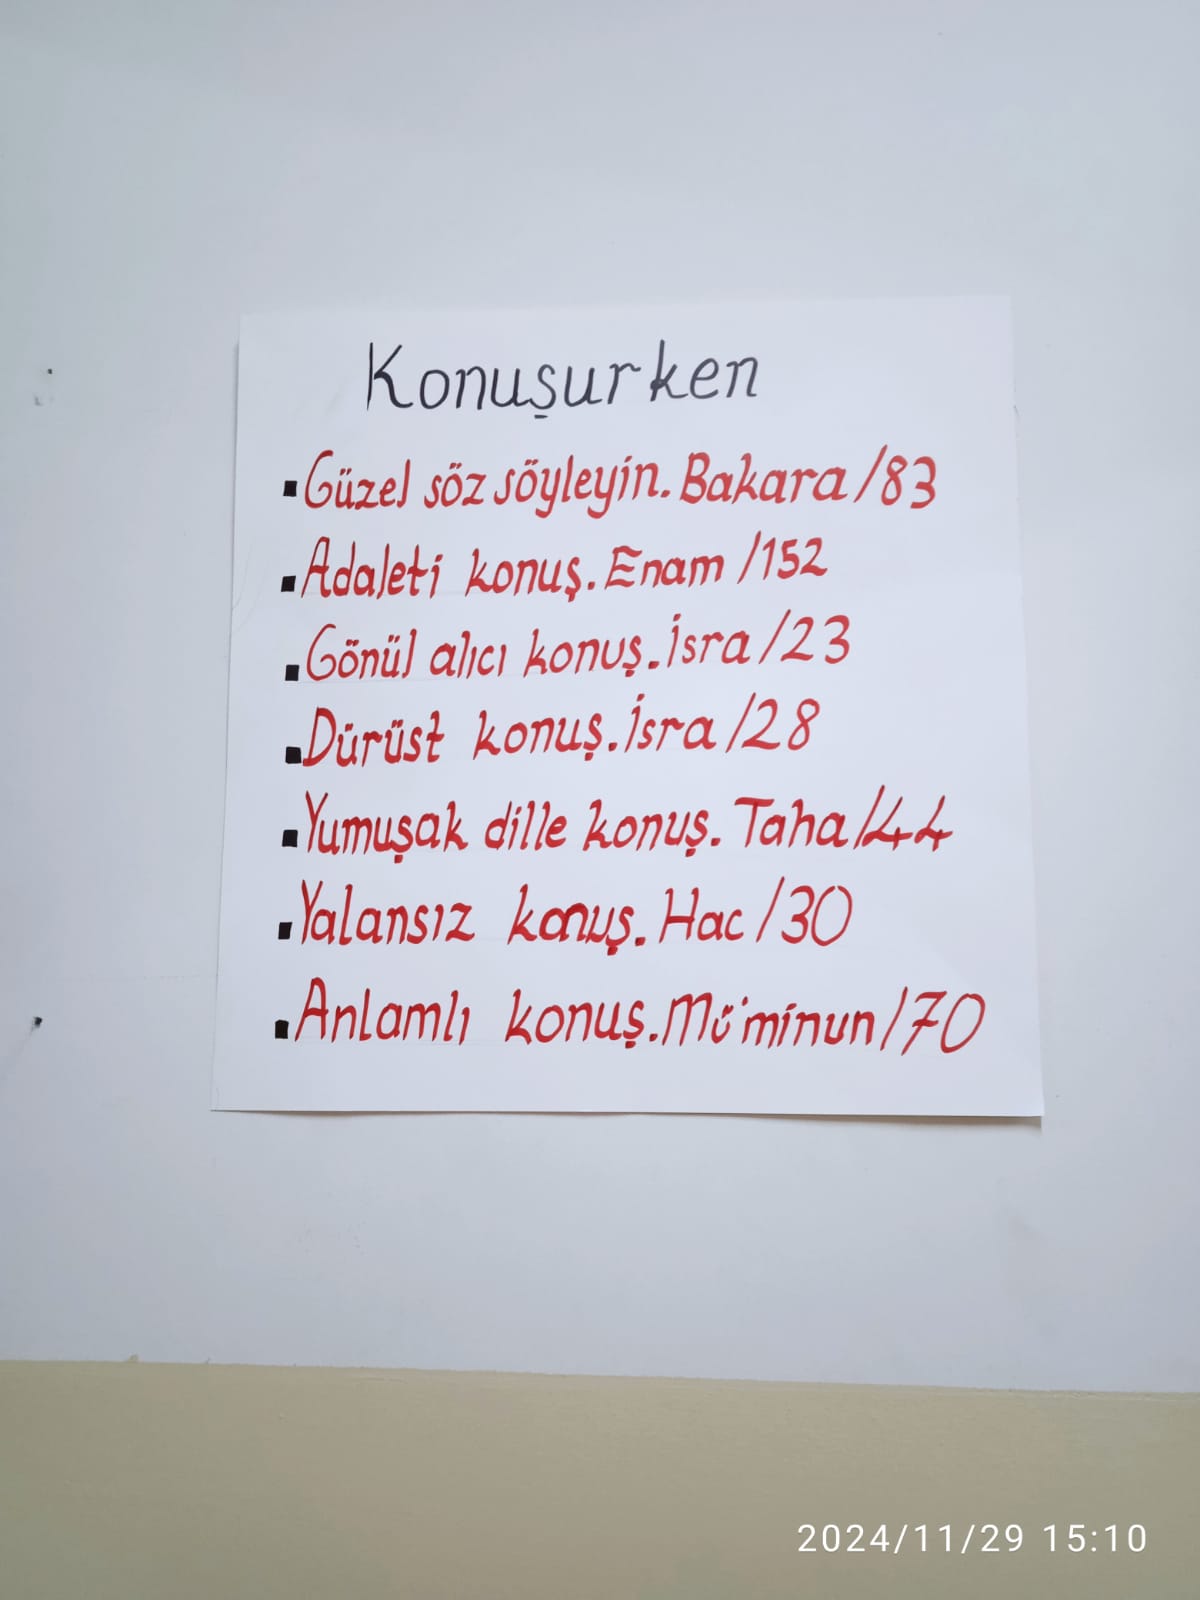 Konuşurken
▪Güzel söz söyleyin. Bakara/83
▪Adaleti konuş. Enam/152
▪Gönül alıcı konuş. İsra/23
▪Dürüst konuş. İsra/28
▪Yumuşak dille konuş. Taha/44
▪Yalansız konuş. Hac/30
▪Anlamlı konuş. Mü'minun/70
2024/11/29 15:10